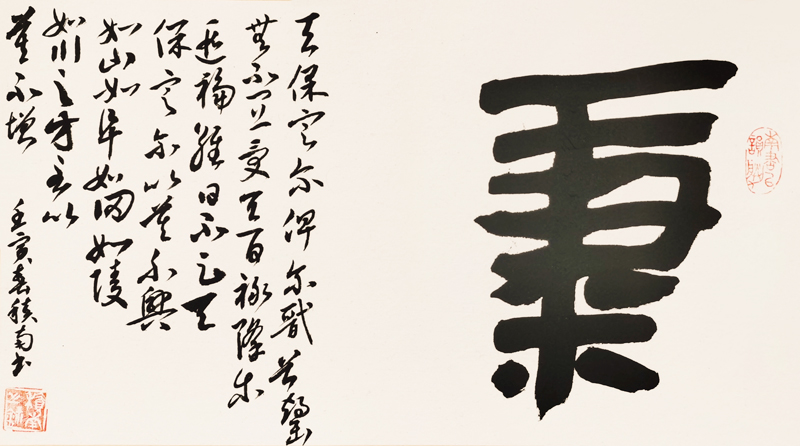 天保定尔俾尔戩谷罄
無不宜受天百禄降尔
遐福維日不足天
保定尔以莫不興
如山如阜如岡如陵
如川之方至以
莫不增
壬寅春積南书